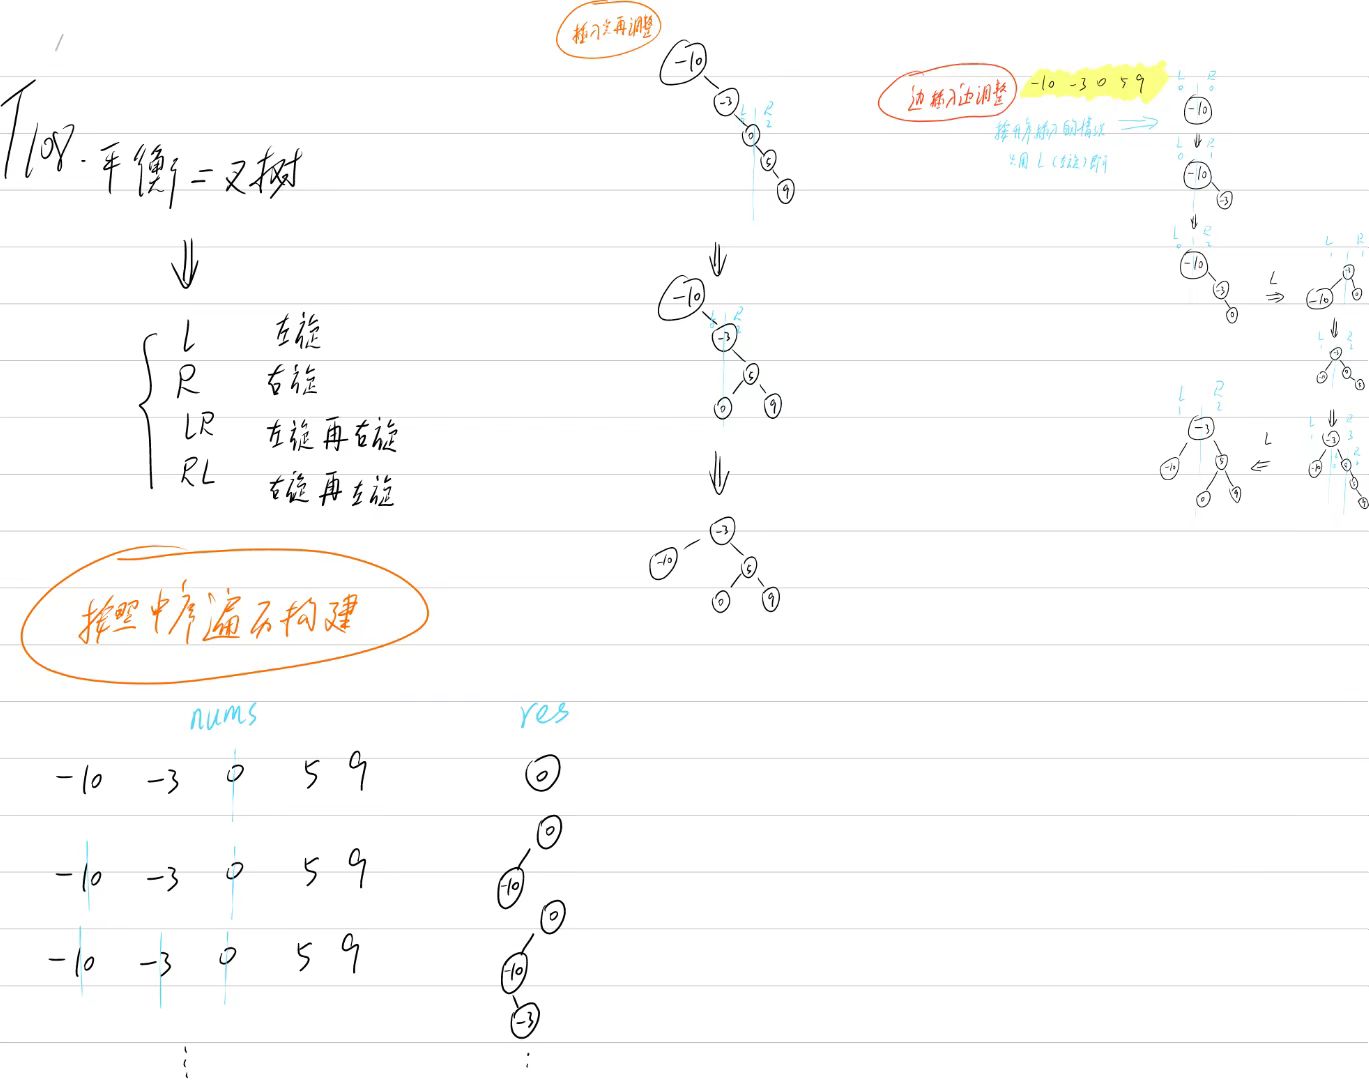 T108. 平衡二叉树
L 左旋
R 右旋
LR 左旋再右旋
RL 右旋再左旋
按照中序遍历构建
nums res
-10 -3 0 5 9 0
-10 -3 0 5 9 0
-10
-10 -3 0 5 9 0
-10
-3
插入完再调整
-10
-3
L R
2
0
5
9
-10
L R
-3
5
0 9
-3
-10 5
0 9
边插入边调整 -10 -3 0 5 9
按升序插入的情况
只用L(左旋)即可
L R
0 0
-10
L R
0 1
-10
-3
L R
0 2
-10
-3
0
L
L R
1 1
-3
-10 0
L R
1 2
-3
-10 0
5
L R
1 3
-3
-10 0
5
9
L
L R
1 2
-3
-10 5
0 9